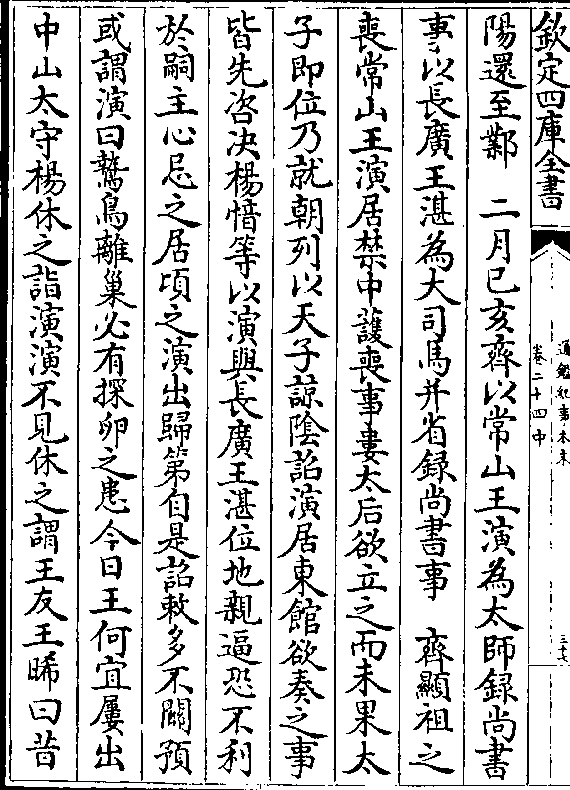 欽定四庫全書
通鑑紀事本末
卷二十四中
三十七
陽還至鄴　二月己亥齊以常山王演為太師録尚書
事以長廣王湛為大司馬并省録尚書事　齊顯祖之
喪常山王演居禁中護喪事婁太后欲立之而未果太
子即位乃就朝列以天子諒陰詔演居東館欲奏之事
皆先咨决楊愔等以演與長廣王湛位地親逼恐不利
於嗣主心忌之居頃之演出歸第自是詔敕多不關預
或謂演曰鷙鳥離巢必有探卵之患今日王何宜屢出
中山太守楊休之詣演演不見休之謂王友王晞曰昔